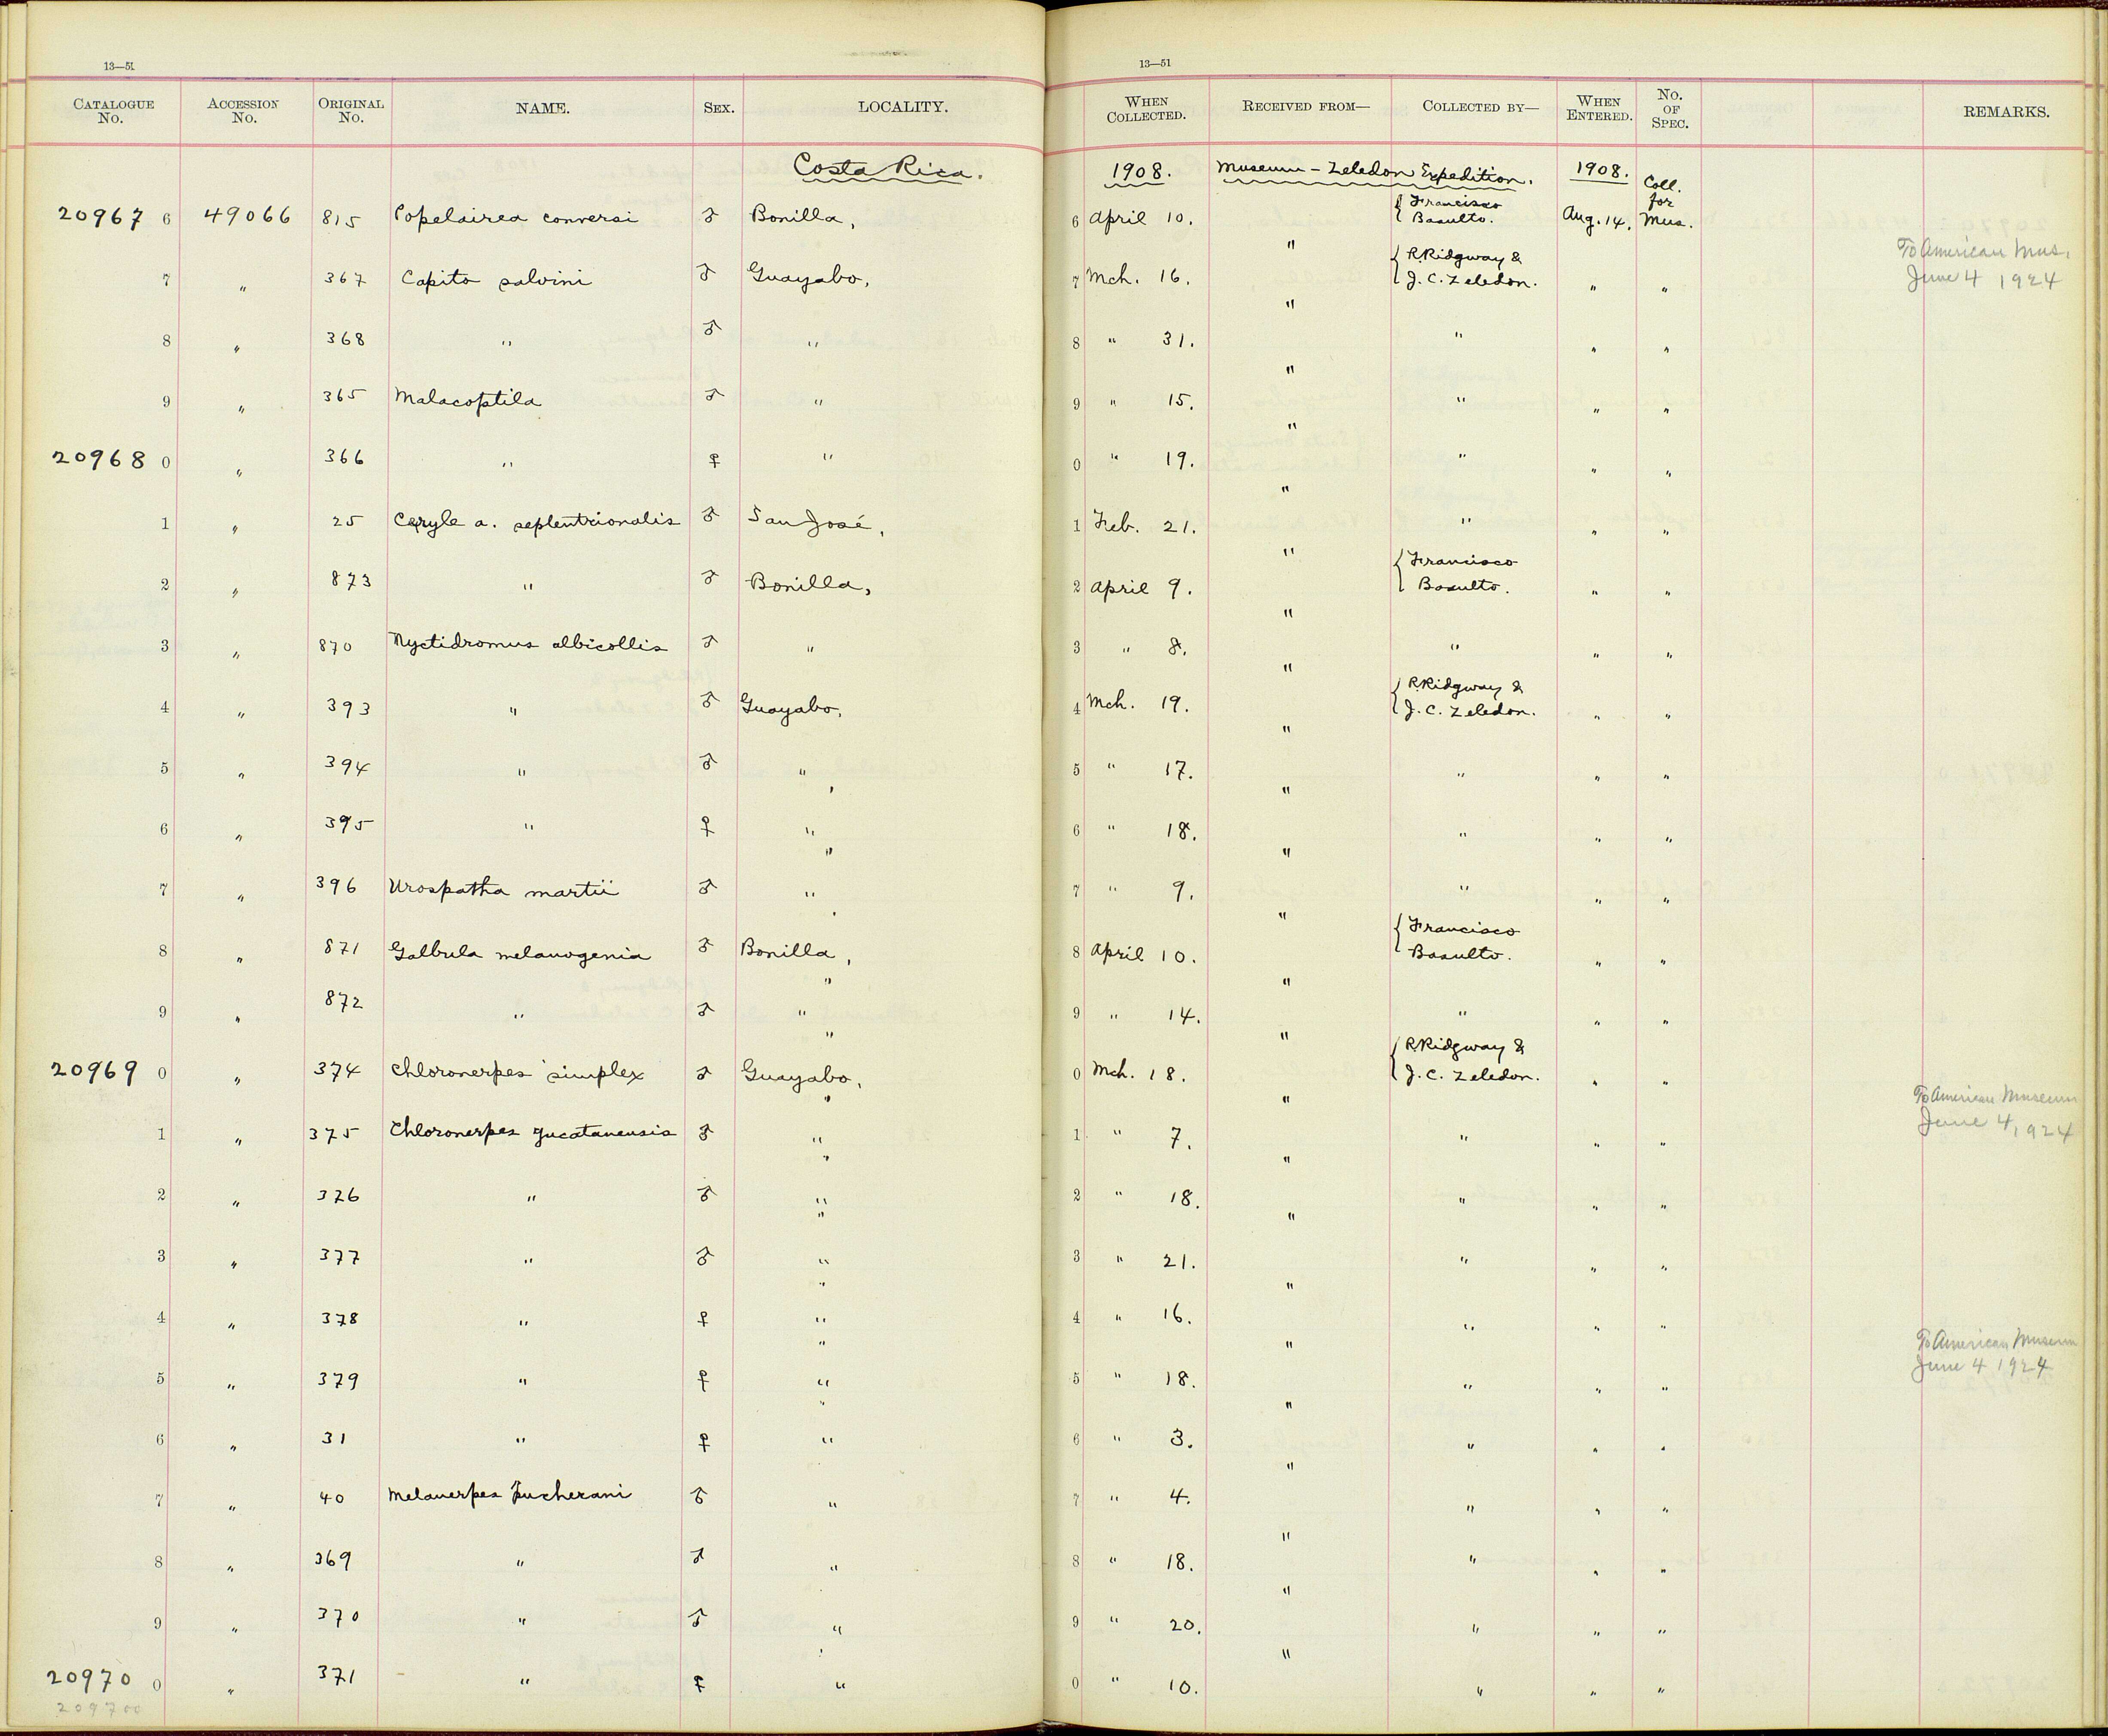 13—51
CATALOGUE No. ACCESSION No. ORIGINAL No. NAME. SEX. LOCALITY.
Costa Rica.
20967 6 49066 815 Popelairea conversi ♂ Bonilla,
7 " 367 Capito salvini ♂ Guayabo,
8 " 368 " ♂ "
9 " 365 Malacoptila ♂ "
20968 0 " 366 " ♀ "
1 " 25 Ceryle a. septentrionalis ♂ San José,
2 " 873 " ♂ Bonilla,
3 " 870 Nyctidromus albicollis ♂ "
4 " 393 " ♂ Guayabo,
5 " 394 " ♂ "
6 " 395 " ♀ "
7 " 396 Urospatha martii ♂ "
8 " 871 Galbula melanogenia ♂ Bonilla,
9 " 872 " ♂ "
20969 0 " 374 Chloronerpes simplex ♂ Guayabo,
1 " 375 Chloronerpes yucatanensis ♂ "
2 " 376 " ♂ "
3 " 377 " ♂ "
4 " 378 " ♀ "
5 " 379 " ♀ "
6 " 31 " ♀ "
7 " 40 Melanerpes pucherani ♂ "
8 " 369 " ♂ "
9 " 370 " ♂ "
20970 0 " 371 " ♀ "
209700
13—51
WHEN COLLECTED. RECEIVED FROM— COLLECTED BY— WHEN ENTERED. No. OF SPEC. REMARKS.
1908. Museum - Zeledon Expedition. 1908. Coll. for
6 April 10. { Francisco Basulto. Aug. 14. Mus.
To American Mus.
June 4 1924
7 Mch. 16. " { R. Ridgway & J. C. Zeledon. " "
8 " 31. " " " "
9 " 15. " " " "
0 " 19. " " " "
1 Feb. 21. " " " "
2 April 9. " { Francisco Basulto. " "
3 " 8. " " " "
4 Mch. 19. " { R. Ridgway & J. C. Zeledon. " "
5 " 17. " " " "
6 " 18. " " " "
7 " 9. " " " "
8 April 10. " { Francisco Basulto. " "
9 " 14. " " " "
0 Mch. 18. " { R. Ridgway & J. C. Zeledon. " "
To American Museum
June 4, 1924
1 " 7. " " " "
2 " 18. " " " "
3 " 21. " " " "
4 " 16. " " " "
To American Museum
June 4 1924
5 " 18. " " " "
6 " 3. " " " "
7 " 4. " " " "
8 " 18. " " " "
9 " 20. " " " "
0 " 10. " " " "